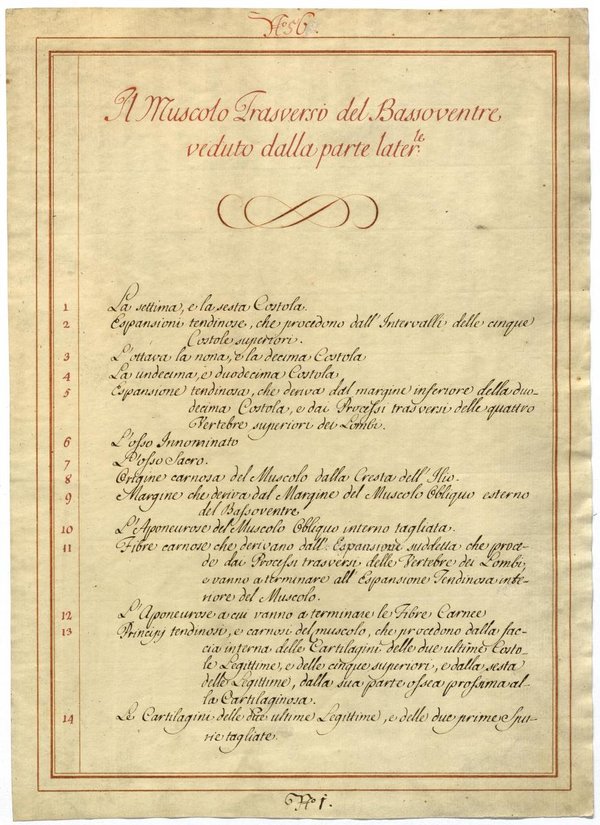 N.º 56.
Il Muscolo Trasverso del Bassoventre
veduto dalla parte later.le
1 La settima, e la sesta Costola.
2 Espansioni tendinose, che procedono dall'Intervalli delle cinque
Costole superiori.
3 L'ottava la nona, e la decima Costola
4 La undecima, e duodecima Costola,
5 Espansione tendinosa, che deriva dal margine inferiore della duo-
decima Costola, e dai Processi trasversi delle quattro
Vertebre superiori dei Lombi.
6 L'osso Innominato
7 L'osso Sacro.
8 Origine carnosa del Muscolo dalla Cresta dell'Ilio.
9 Margine che deriva dal Margine del Muscolo Obliquo esterno
del Bassoventre
10 L'Aponeurose del Muscolo Obliquo interno tagliata.
11 Fibre carnose che derivano dall'Espansione suddetta che proce-
de dai Processi trasversi delle Vertebre dei Lombi,
e vanno a terminare all'Espansione Tendinosa inte-
riore del Muscolo.
12 L'Aponeurose a cui vanno a terminare le Fibre Carnee
13 Principj tendinosi, e carnosi del muscolo, che procedono dalla fac-
cia interna delle Cartilagini delle due ultime Costo
le Legittime, e delle cinque superiori, e dalla sesta
delle Legittime, dalla sua parte ossea prossima al-
la Cartilaginosa.
14 Le Cartilagini delle due ultime Legittime, e delle due prime Spu-
rie tagliate.
N.º 1.